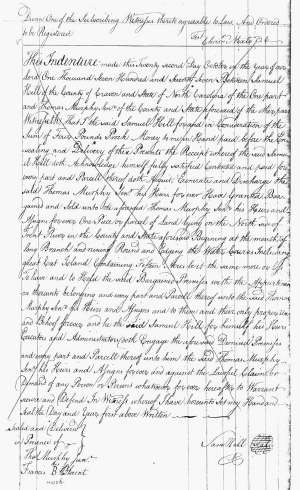 Divan One of the Subscribing Witnesses thereto agreeable to Law And Ordered
to be Registered
Test
This Indenture made this Twenty second Day October of the Year of our
Lord One Thousand Seven Hundred and Seventy Seven Between Samuel
Hall of the County of Craven and State of North Carolina of the One part
and Thomas Murphy Senr of the County and State aforesaid of the other part
Witnesseth that I the said Samuel Hall for and in Consideration of the
Sum of Pounds Proclm Money to me in Hand paid before the
Sealing and Delivery of these Presents the Receipt whereof the said Samuel
Hall doth Acknowledge himself fully satisfied Contented and paid for
every part and Parcell thereof doth Acquit Exonerate and Discharge the
said Thomas Murphy Senr his Heirs for ever Have Granted Bar-
gained and Sold unto the aforesaid Thomas Murphy Senr his Heirs and
Assigns forever One Piece or parcel of Land lying on the North side of
Trent River in the County and State aforesaid Begining at the mouth of
long Branch and runing Round and Laying the Water Course Including
great Oat Island Containing Fifteen Acres be it the same more or less
To have and to Hold the said Bargained Premises with the Appurtenan-
ces thereunto belonging and every part and Parcell thereof unto the said Thomas
Murphy Senr his Heirs and Assigns and to them and their only proper use
and Behoof forever and he the said Samuel Hall for himself his Heirs
Executors and Administrators doth Engage the aforesaid Demised Premises
and every part and Parcell thereof unto him the said Thomas Murphy
Senr his Heirs and Assigns forever and against the Lawful Claim or
Demand of any Person or Persons whatsoever forever hereafter to Warrant
Secure and Defend In Witness whereof I have hereunto Set my Hand and
Seal the Day and Year first above Written
Sealed and Delivered
in Presence of
Thos Murphy Junr
Francis
mark
Sam Hall Seal